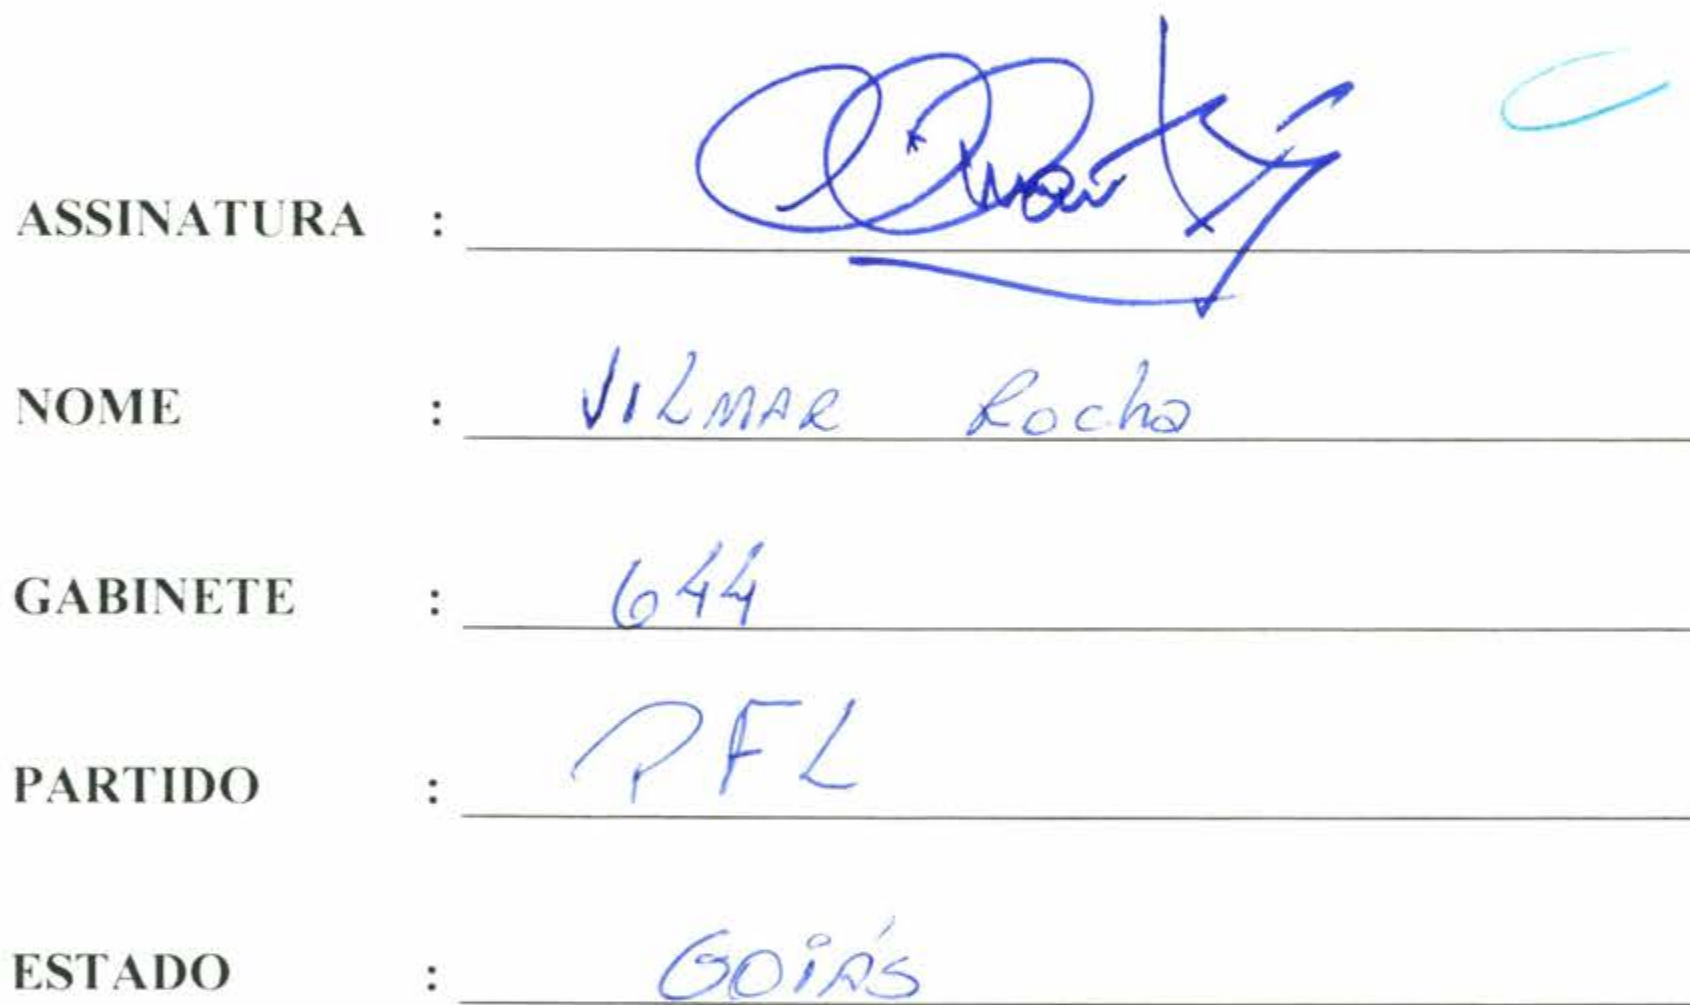 ASSINATURA :
NOME : VILMAR Rocha
GABINETE : 644
PARTIDO : PFL
ESTADO : GOIÁS